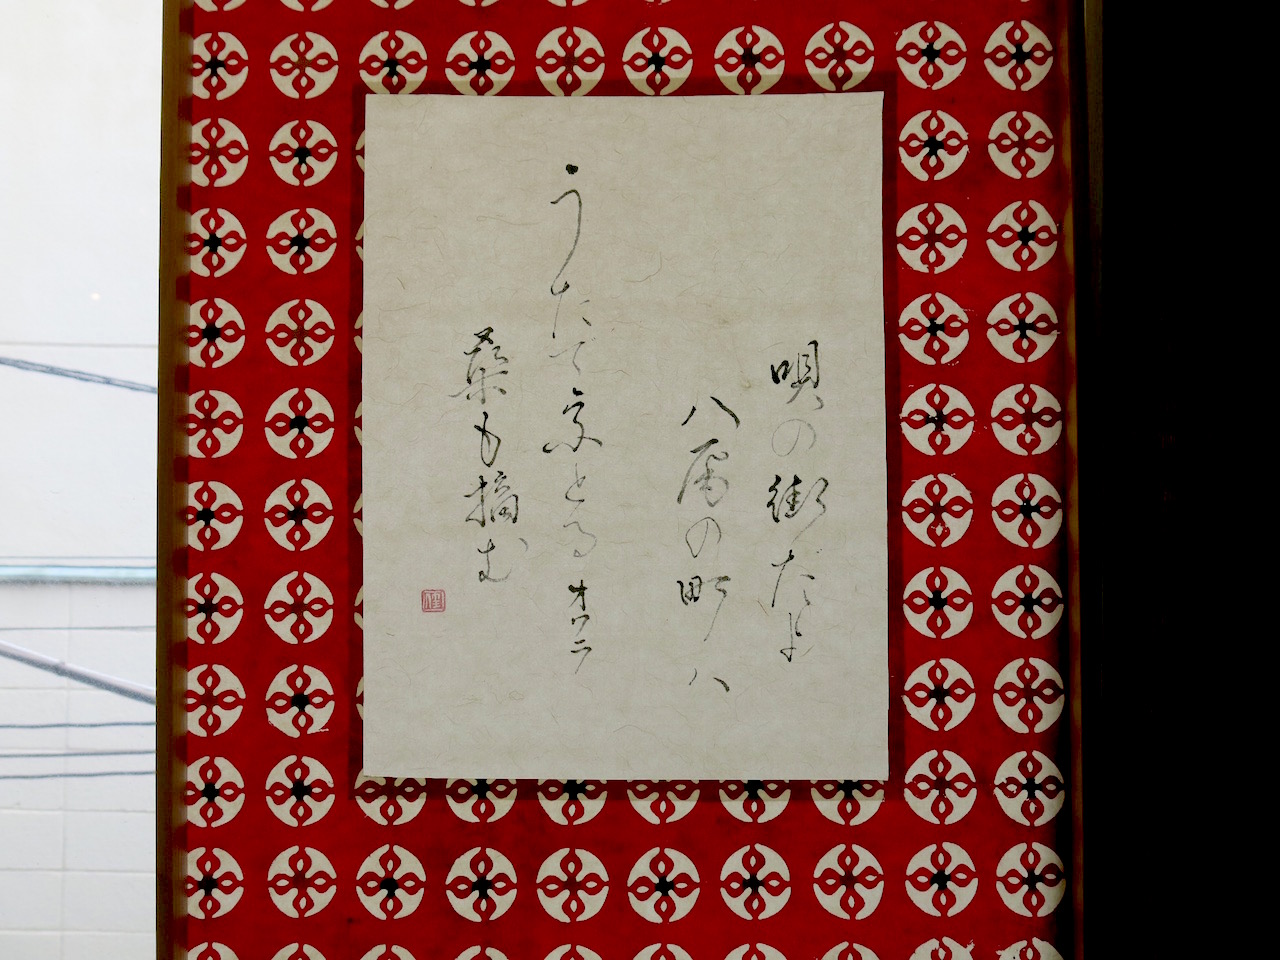 唄の街だよ
八尾の町ハ
うたで糸とるオワラ
桑も摘む